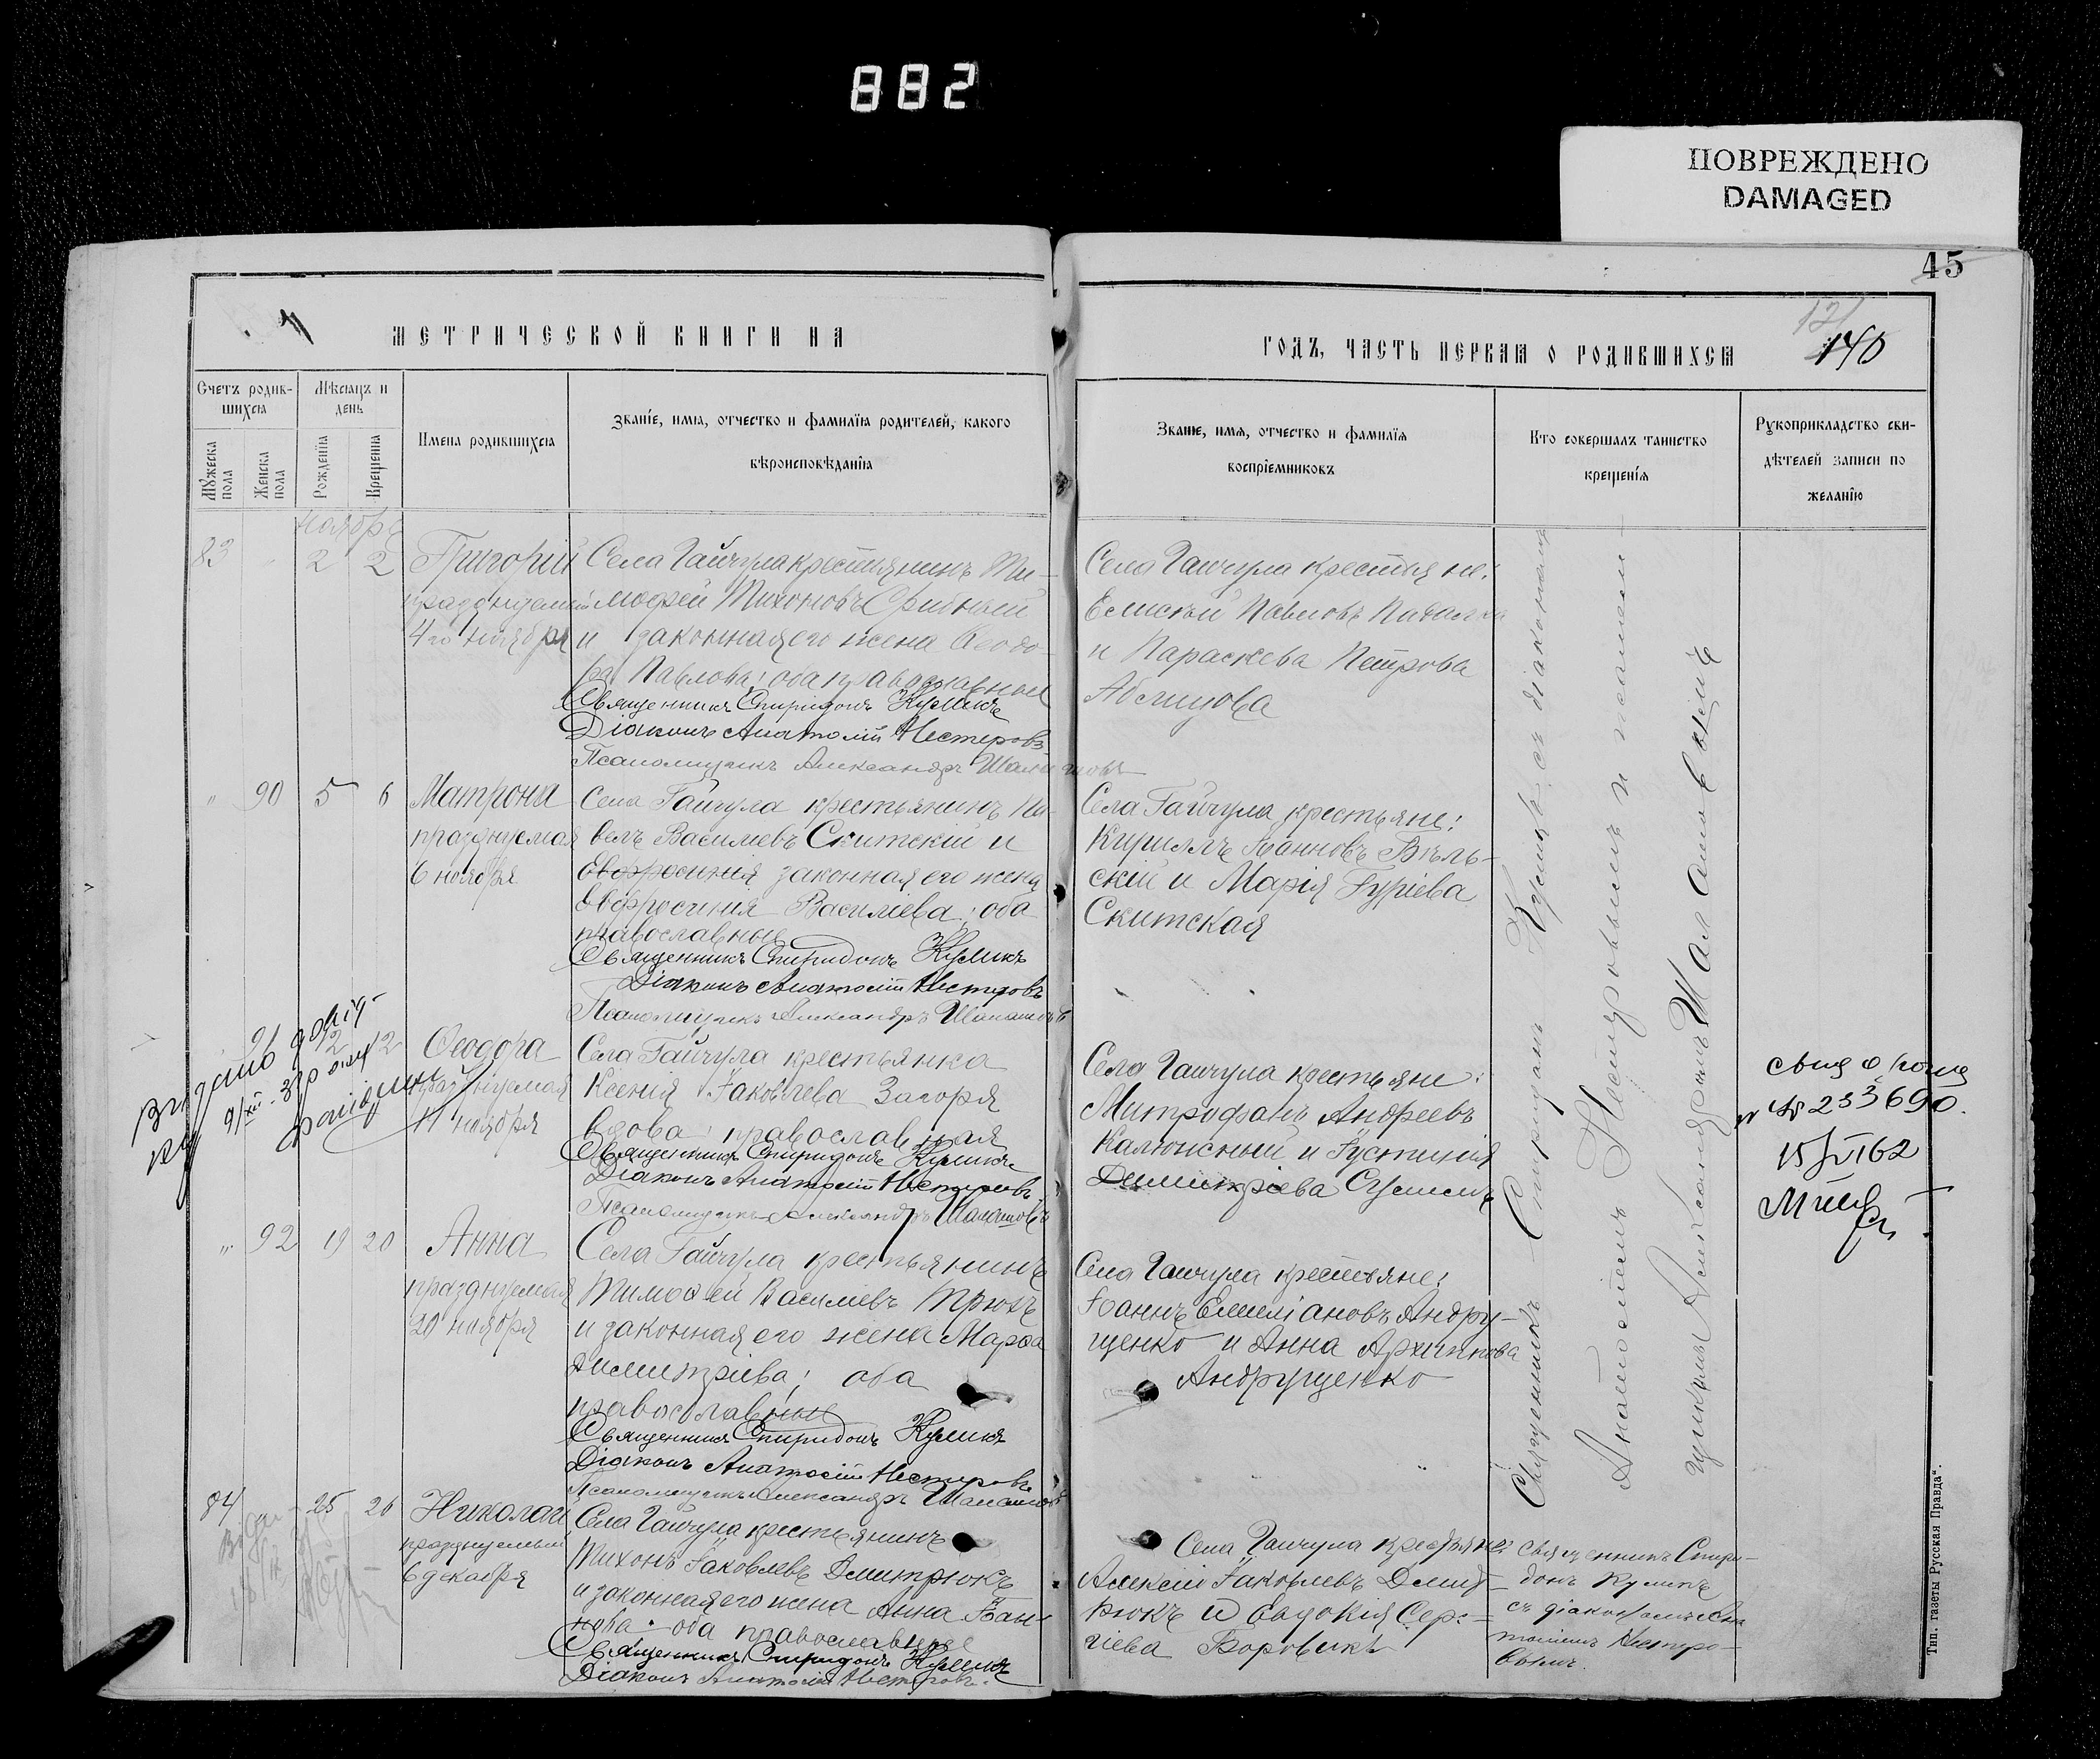 882
ПОВРЕЖДЕНО
DAMAGED
45
МЕТРИЧЕСКОЙ КНИГИ НА
ГОДЪ, ЧАСТЬ ПЕРВАЯ О РОДИВШИХСЯ
121
140
Счетъ родив-
шихся
Мѣсяцъ и
день
Мужеска
пола
Женска
пола
Рожденія
Крещенія
Имена родившихся
Званіе, имя, отчество и фамилія родителей, какого
вѣроисповѣданія
Званіе, имя, отчество и фамилія
воспріемниковъ
Кто совершалъ таинство
крещенія
Рукоприкладство сви-
дѣтелей записи по
желанію
Ноябрь
83 2 2
Григорій
празднуемый
4го ноября
Села Гайчула крестьянинъ Ти-
мофей Тихоновъ
и законная его жена Ѳеодо-
ра Павлова; оба православные
Священникъ Спиридонъ Куликъ
Діаконъ Анатолій Нестеровъ
Псаломщикъ Александръ Шаламовъ
Села Гайчула крестьяне:
Елисей Павловъ
и Параскева Петрова
" 90 5 6
Матрона
празднуемая
6 ноября
Села Гайчула крестьянинъ Па-
велъ Василіевъ Скитскій и
Евфросинія законная его жена
Евфросинія Василіева; оба
православные
Священникъ Спиридонъ Куликъ
Діаконъ Анатолій Нестеровъ
Псаломщикъ Александръ Шаламовъ
Села Гайчула крестьяне:
Кириллъ Іоанновъ Бѣль-
скій и Марія Гуріева
Скитская
91 12
Ѳеодора
празднуемая
11 ноября
Села Гайчула крестьянка
Ксенія Іаковлева Загоря
вдова православная
Священникъ Спиридонъ Куликъ
Діаконъ Анатолій Нестеровъ
Псаломщикъ Александръ Шаламовъ
Села Гайчула крестьяне:
Митрофанъ Андреевъ
Калюжный и Іустинія
Димитріева
№ 233690.
15/VI 62
" 92 19 20
Анна
празднуемая
20 ноября
Села Гайчула крестьянинъ
Тимофей Василіевъ Трюхъ
и законная его жена Марфа
Димитріева; оба
православные
Священникъ Спиридонъ Куликъ
Діаконъ Анатолій Нестеровъ
Псаломщикъ Александръ Шаламовъ
Села Гайчула крестьяне:
Іоаннъ Емеліановъ Андру-
щенко и Анна Архиппова
Андрущенко
84 25 26
Николай
празднуемый
6 декабря
Села Гайчула крестьянинъ
Тихонъ Іаковлевъ Дмитрюкъ
и законная его жена Анна Іоан-
нова; оба православные
Священникъ Спиридонъ Куликъ
Діаконъ Анатолій Нестеровъ.
Села Гайчула крестьяне:
Алексій Іаковлевъ Дмит-
рюкъ и Евдокія Сер-
гіева Боровикъ
Священникъ Спири-
донъ Куликъ
съ діакономъ Ана-
толіемъ Нестеро-
вымъ.
Священникъ Спиридонъ Куликъ съ діакономъ
Анатоліемъ Нестеровымъ и псалом-
щикомъ Александромъ Шаламовымъ
Тип. газеты „Русская Правда“.